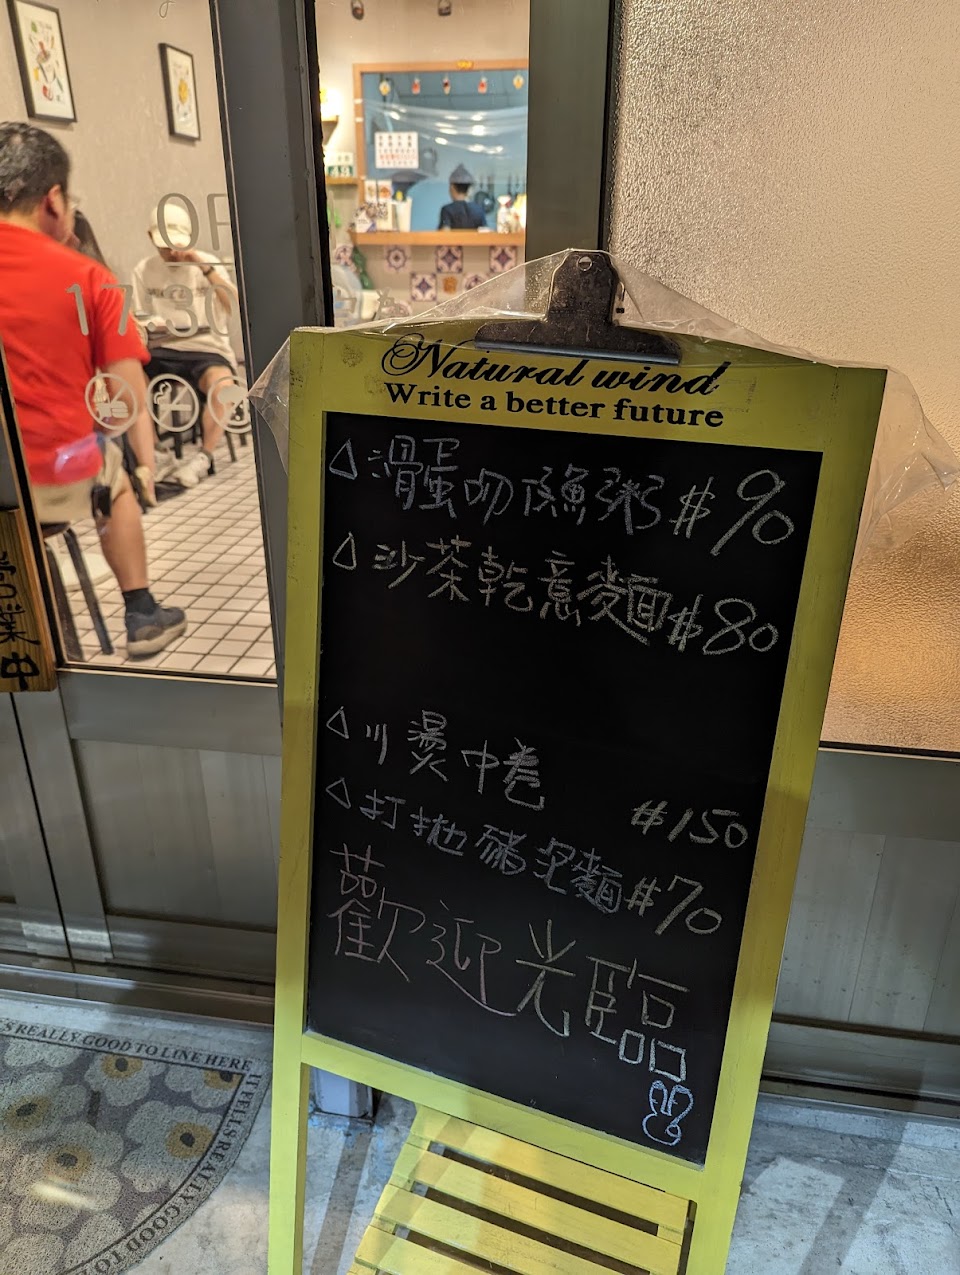 OF
17:30
營業中
Natural wind
Write a better future
△滑蛋吻𩵚魚粥 $90
△沙茶乾意麵 $80
△川燙中卷 $150
△打拋豬泥麵 $70
歡迎光臨
S REALLY GOOD TO LINE HERE
IT FEELS REALLY GOOD TO